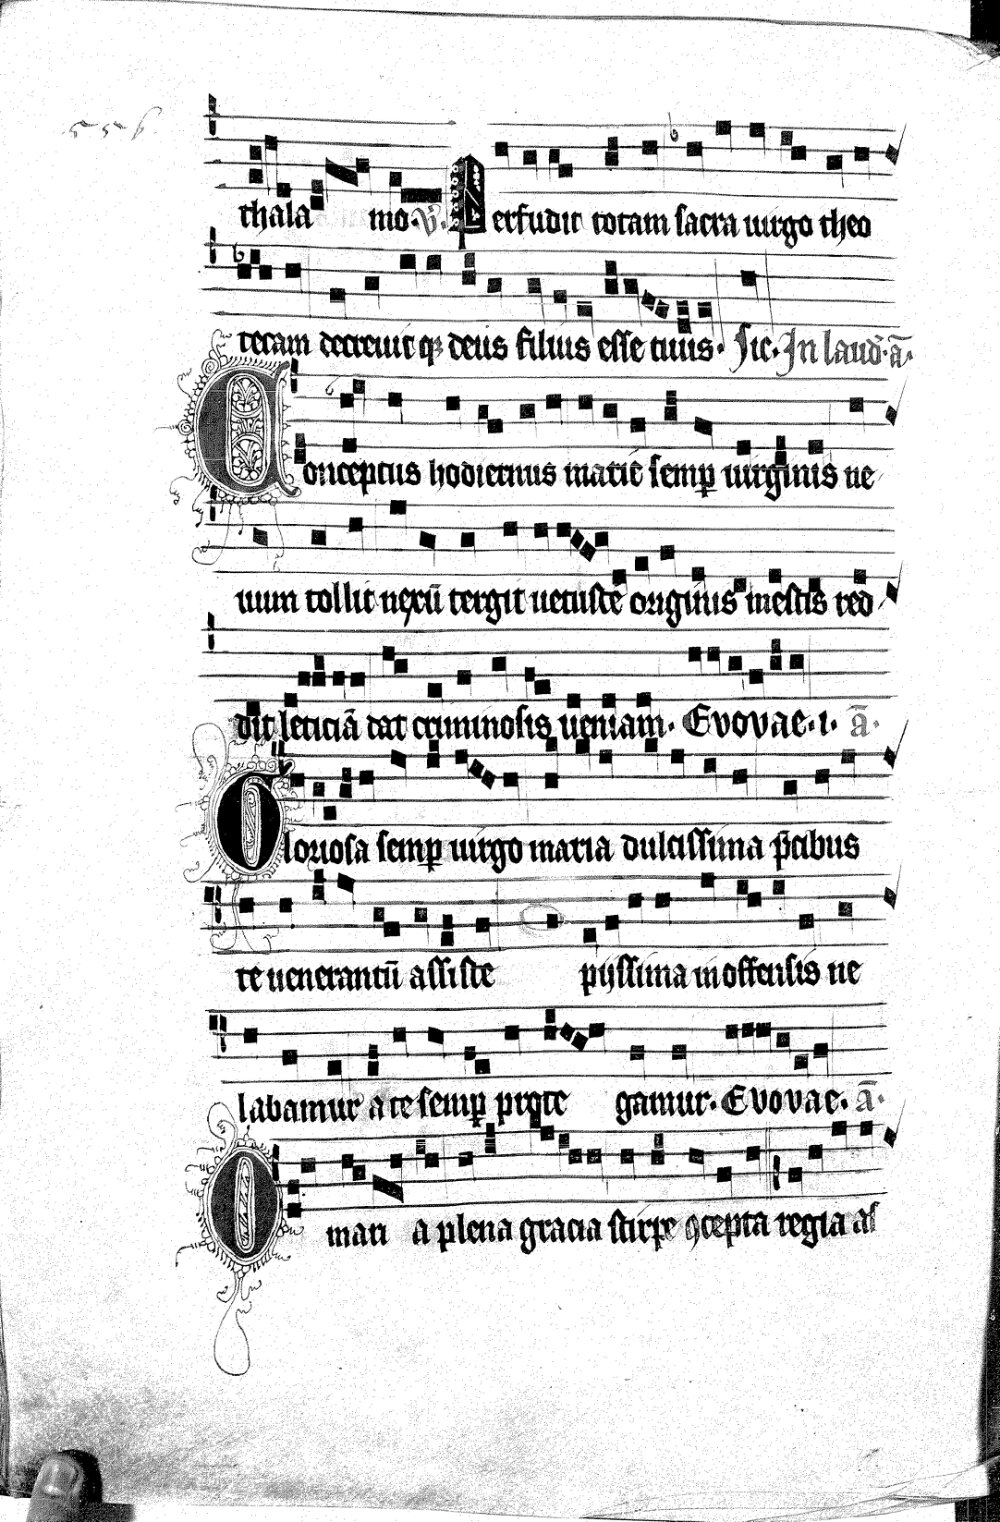 556
thala mo. V. Perfudit totam sacra uirgo theo
tecam decreuit qȝ deus filius esse tuus. Sic. In laud̄. ā.
Conceptus hodiernus marie semꝑ uirginis ne
uum tollit nexū tergit uetuste originis mestis red
dit leticiā dat criminosis ueniam. Evovae. i. ā.
Gloriosa semꝑ uirgo maria dulcissima p̄cibus
te uenerantū assiste pijssima in offensis ne
labamur a te semꝑ prote gamur. Evovae. ā.
O mari a plena gracia stirpe ꝯcepta regia as